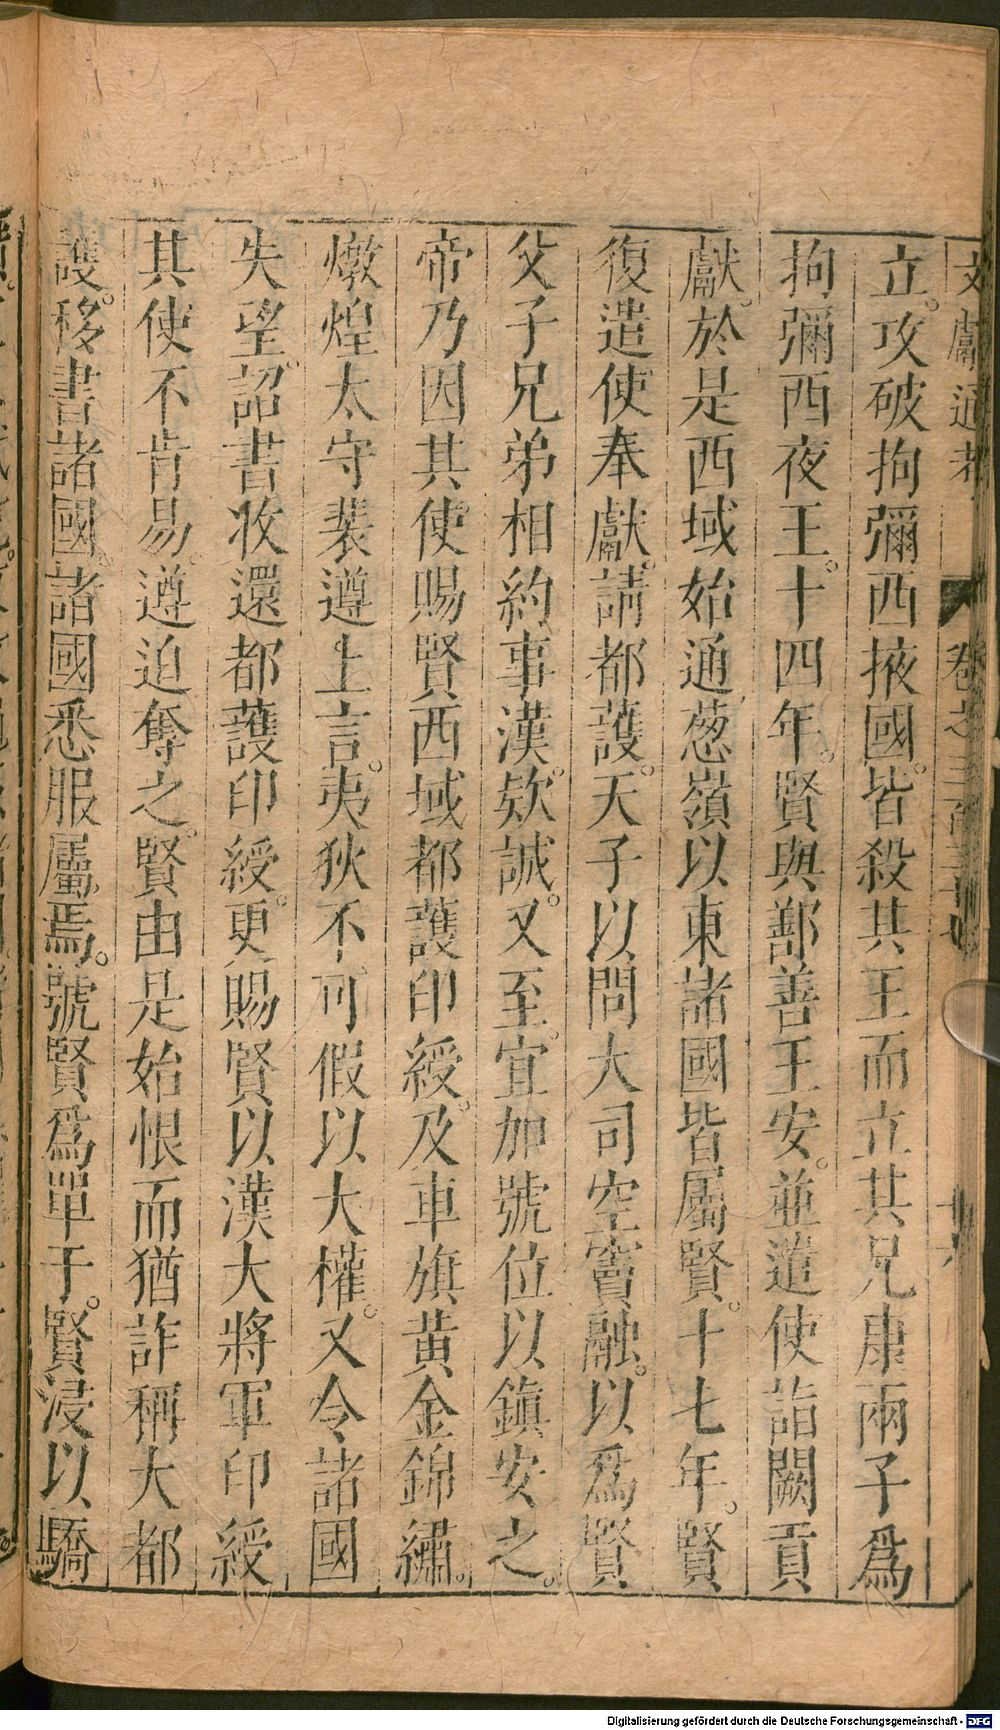 文獻通考 卷之三百三十 十六
立。攻破拘彌西掖國。皆殺其王而立其兄康兩子爲
拘彌西夜王。十四年。賢與鄯善王安。並遣使詣闕貢
獻。於是西域始通葱嶺以東諸國皆屬賢。十七年。賢
復遣使奉獻。請都護。天子以問大司空竇融。以爲賢
父子兄弟相約事漢。欵誠。又至。宜加號位以鎮安之。
帝乃因其使賜賢西域都護印綬。及車旗黄金錦繡。
燉煌太守裴遵上言。夷狄不可假以大權。又令諸國
失望。詔書收還都護印綬。更賜賢以漢大將軍印綬
其使不肯易。遵迫奪之。賢由是始恨而猶詐稱大都
護。移書諸國。諸國悉服屬焉。號賢爲單于。賢浸以驕
Digitalisierung gefördert durch die Deutsche Forschungsgemeinschaft - DFG